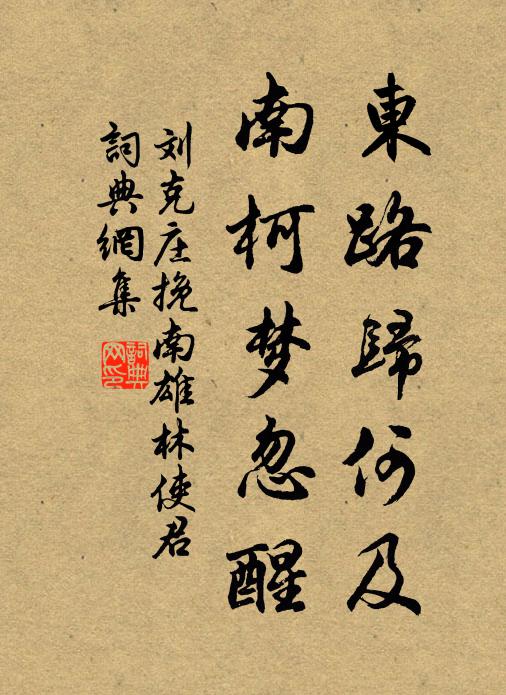 東路歸何及
南柯梦忽醒
刘克庄挽南雄林使君
詞典網集
詞典
网印